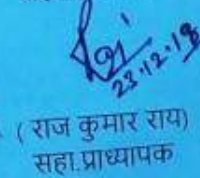 23.12.18
( राज कुमार राय)
सहा.प्राध्यापक